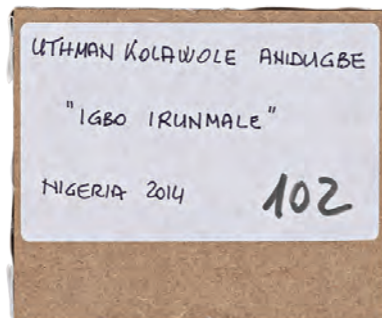 UTHMAN KOLAWOLE ANIDUGBE
"IGBO IRUNMALE"
NIGERIA 2014 102